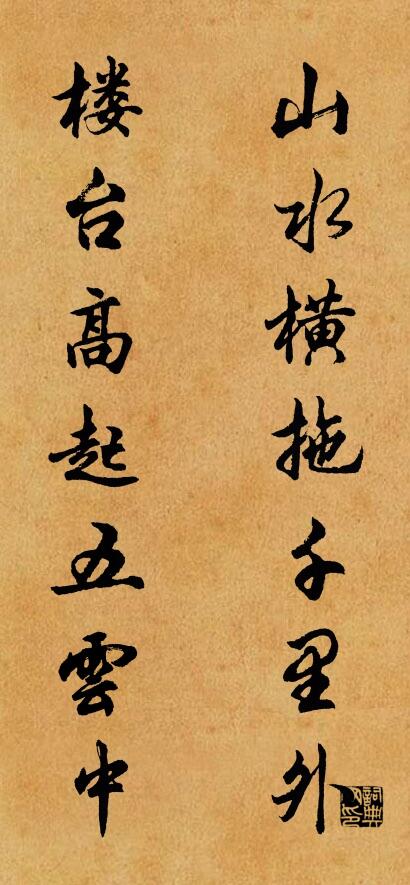 山水橫拖千里外
楼台高起五雲中